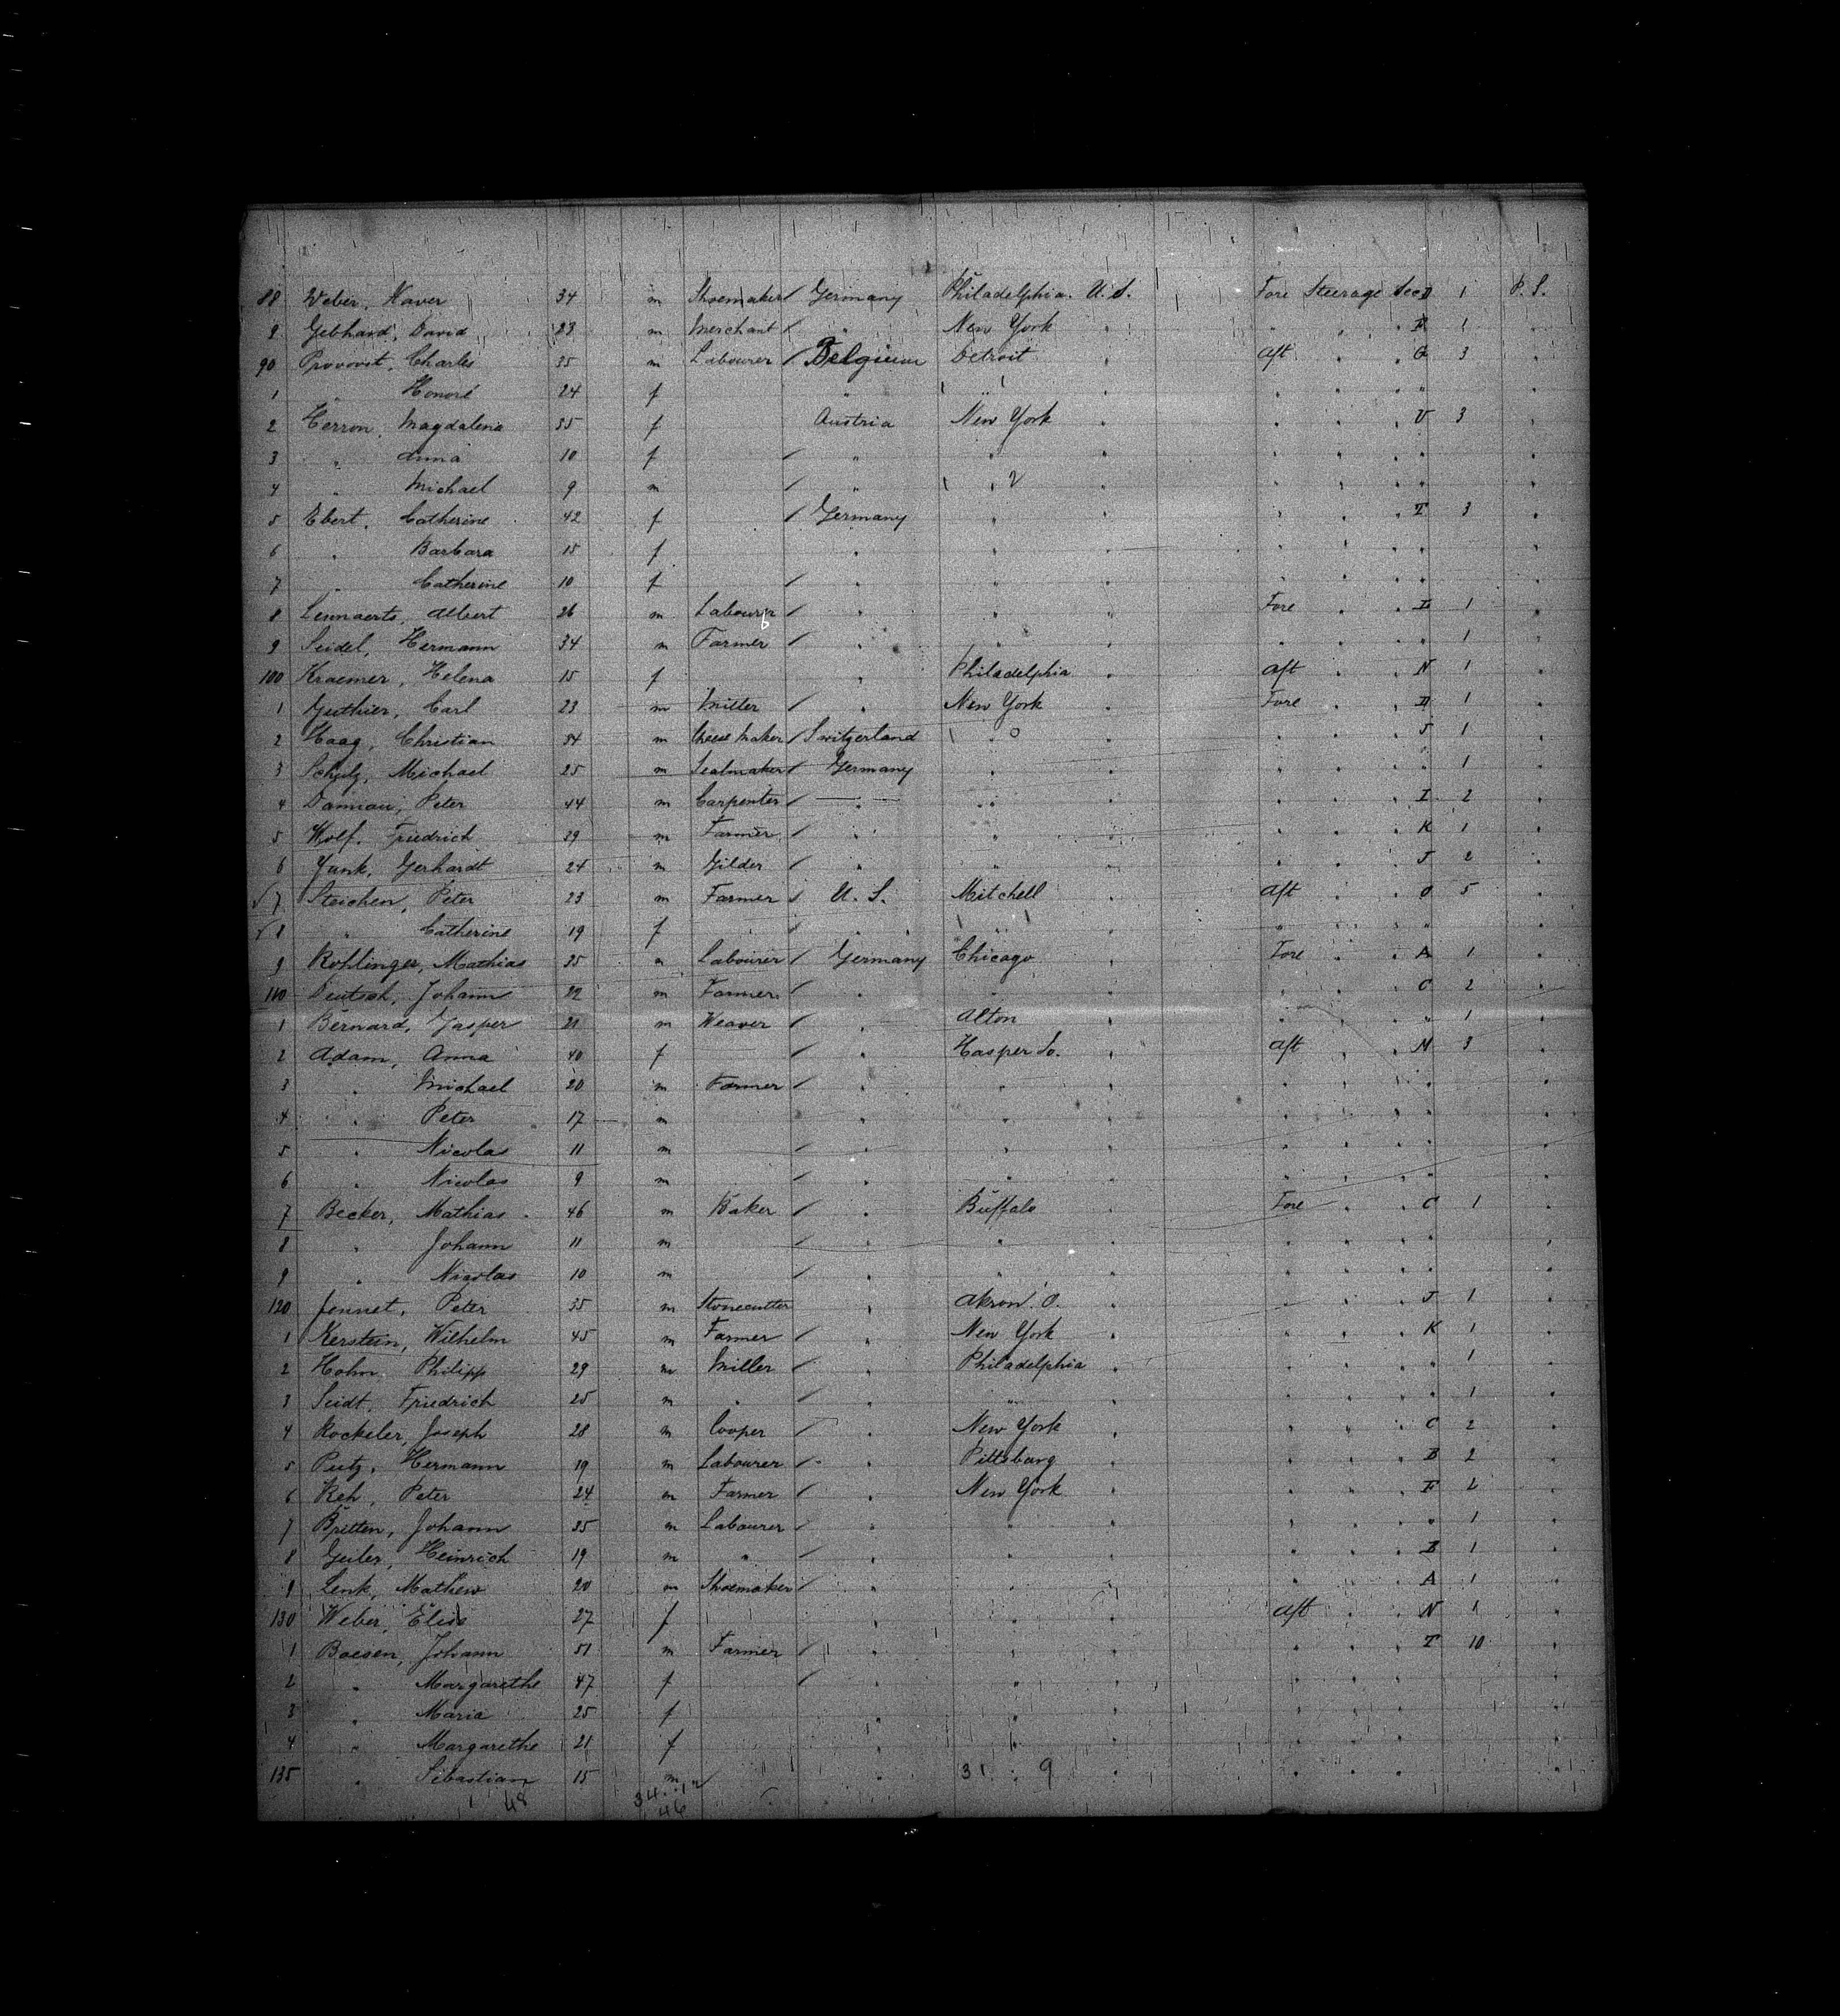 88 Weber, Xaver 34 m Shoemaker Germany Philadelphia. U.S. Fore Steerage Sec D 1 P.S.
9 Gebhard, David 23 m Merchant " New York " " " " 1 "
90 Provost, Charles 35 m Labourer Belgium Detroit " Aft " " G 3 "
1 " Honoré 24 f " " " " " " " "
2 Herron, Magdalena 35 f Austria New York " " " " V 3 "
3 " Anna 10 f " " " " " " " "
4 " Michael 9 m " " 2 " " " " " "
5 Ebert, Catherine 42 f Germany " " " " " T 3 "
6 " Barbara 15 f " " " " " " " "
7 " Catherine 10 f " " " " " " " "
8 Lennaerts, Albert 26 m Labourer " " " Fore " " I 1 "
9 Seidel, Hermann 34 m Farmer " " " " " " " 1 "
100 Kraemer, Helena 15 f " Philadelphia " Aft " " N 1 "
1 Guthier, Carl 23 m Miller " New York " Fore " " D 1 "
2 Haag, Christian 34 m Cheese Maker Switzerland " 0 " " " " J 1 "
3 Schulz, Michael 25 m Sealmaker Germany " " " " " " 1 "
4 Damian, Peter 44 m Carpenter " " " " " " I 2 "
5 Wolf, Friedrich 29 m Farmer " " " " " " K 1 "
6 Junk, Gerhardt 24 m Gilder " " " " " " J 2 "
7 Steichen, Peter 23 m Farmer U.S. Mitchell " Aft " " O 5 "
8 " Catherine 19 f " " " " " " " "
9 Rohlinger, Mathias 25 m Labourer Germany Chicago " Fore " " A 1 "
110 Deutsch, Johann 22 m Farmer " " " " " " C 2 "
1 Bernard, Jasper 21 m Weaver " Alton " " " " " 1 "
2 Adam, Anna 40 f " Kasper So. " Aft " " N 3 "
3 " Michael 20 m Farmer " " " " " " " "
4 " Peter 17 m " " " " " " " "
5 " Nicolas 11 m " " " " " " " "
6 " Nicolas 9 m " " " " " " " "
7 Becker, Mathias 46 m Baker " Buffalo " Fore " " C 1 "
8 " Johann 11 m " " " " " " " "
9 " Nicolas 10 m " " " " " " " "
120 Jennet, Peter 35 m Stonecutter " Akron. O. " " " " J 1 "
1 Kerstein, Wilhelm 45 m Farmer " New York " " " " K 1 "
2 Hohn, Philipp 29 m Miller " Philadelphia " " " " " 1 "
3 Seidt, Friedrich 25 m " " " " " " " " 1 "
4 Rockeler, Joseph 28 m Cooper " New York " " " " C 2 "
5 Putz, Hermann 19 m Labourer " Pittsburg " " " " B 2 "
6 Reh, Peter 24 m Farmer " New York " " " " F 2 "
7 Britten, Johann 35 m Labourer " " " " " " " 1 "
8 Geiler, Heinrich 19 m " " " " " " " B 1 "
9 Lenk, Mathew 20 m Shoemaker " " " " " " A 1 "
130 Weber, Elise 27 f " " " Aft " " N 1 "
1 Boesen, Johann 51 m Farmer " " " " " " T 10 "
2 " Margarethe 47 f " " " " " " " "
3 " Maria 25 f " " " " " " " "
4 " Margarethe 21 f " " " " " " " "
135 " Sebastian 15 m " 31 9 " " " " " "
48 34 12
46